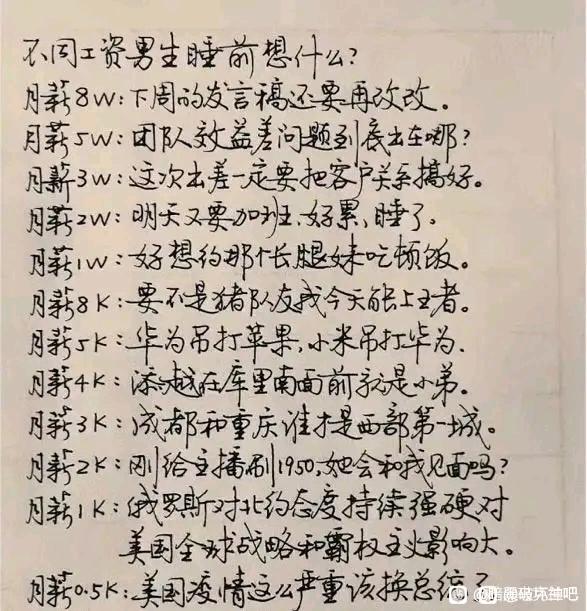 不同工资男生睡前想什么?
月薪8W:下周的发言稿还要再改改。
月薪5W:团队效益差问题到底出在哪?
月薪3W:这次出差一定要把客户关系搞好。
月薪2W:明天又要加班、好累,睡了。
月薪1W:好想约那个长腿妹吃顿饭。
月薪8K:要不是猪队友我今天能上王者。
月薪5K:华为吊打苹果,小米吊打华为、
月薪4K:添越在库里南面前就是小弟。
月薪3K:成都和重庆谁才是西部第一城。
月薪2K:刚给主播刷1950,她会和我见面吗?
月薪1K:俄罗斯对北约态度持续强硬对
美国全球战略和霸权主义影响大。
月薪0.5K:美国疫情这么严重该换总统了